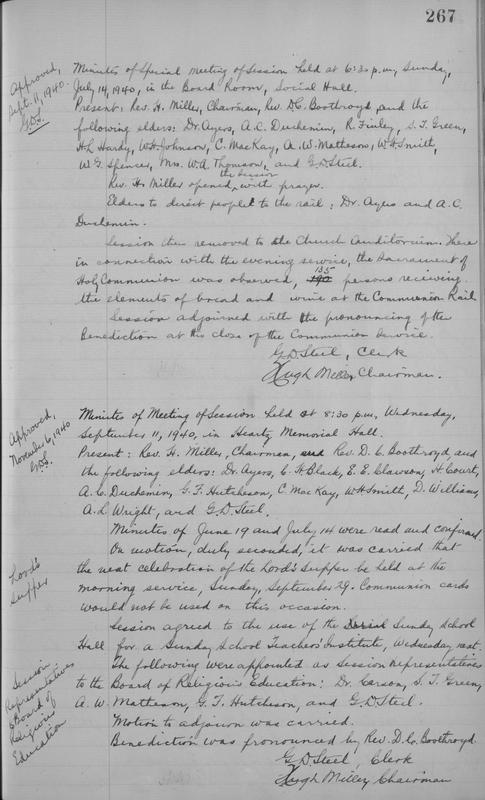 267
Approved,
Sept. 11, 1940.
G.D.S.
Minutes of Special Meeting of Session held at 6:30 p.m., Sunday,
July 14, 1940, in the Board Room, Social Hall.
Present: Rev. H. Miller, Chairman, Rev. D.C. Boothroyd, and the
following elders: Dr. Ayers, A.C. Duchemin, R. Finley, S.T. Green,
H.L. Hardy, W.H. Johnson, C. MacKay, A.W. Matheson, W.H. Smitt,
W.G. Spencer, Mrs. W.A. Thomson, and G.D. Steel.
Rev. H. Miller opened the session with prayer.
Elders to direct people to the rail: Dr. Ayers and A.C.
Duchemin.
Session then removed to the Church Auditorium. There
in connection with the evening service, the Sacrament of
Holy Communion was observed, 190 135 persons receiving
the elements of bread and wine at the Communion Rail.
Session adjourned with the pronouncing of the
Benediction at the close of the Communion Service.
G.D. Steel, Clerk
Hugh Miller, Chairman.
Approved,
November 6, 1940
G.D.S.
Minutes of Meeting of Session held at 8:30 p.m., Wednesday,
September 11, 1940, in Heartz Memorial Hall.
Present: Rev. H. Miller, Chairman, and Rev. D.C. Boothroyd, and
the following elders: Dr. Ayers, C.H. Black, E.E. Clawson, H. Court,
A.C. Duchemin, G.F. Hutcheson, C. MacKay, W.H. Smitt, D. Williams,
A.L. Wright, and G.D. Steel.
Minutes of June 19 and July 14 were read and confirmed.
On motion, duly seconded, it was carried that
Lord's
Supper
the next celebration of the Lord's Supper be held at the
morning service, Sunday, September 29. Communion cards
would not be used on this occasion.
Session agreed to the use of the Social Sunday School
Hall for a Sunday School Teachers' Institute, Wednesday next.
Session
Representatives
Board of
Religious
Education
The following were appointed as Session Representatives
to the Board of Religious Education: Dr. Carson, S.T. Green,
A.W. Matheson, G.F. Hutcheson, and G.D. Steel.
Motion to adjourn was carried.
Benediction was pronounced by Rev. D.C. Boothroyd.
G.D. Steel, Clerk
Hugh Miller, Chairman